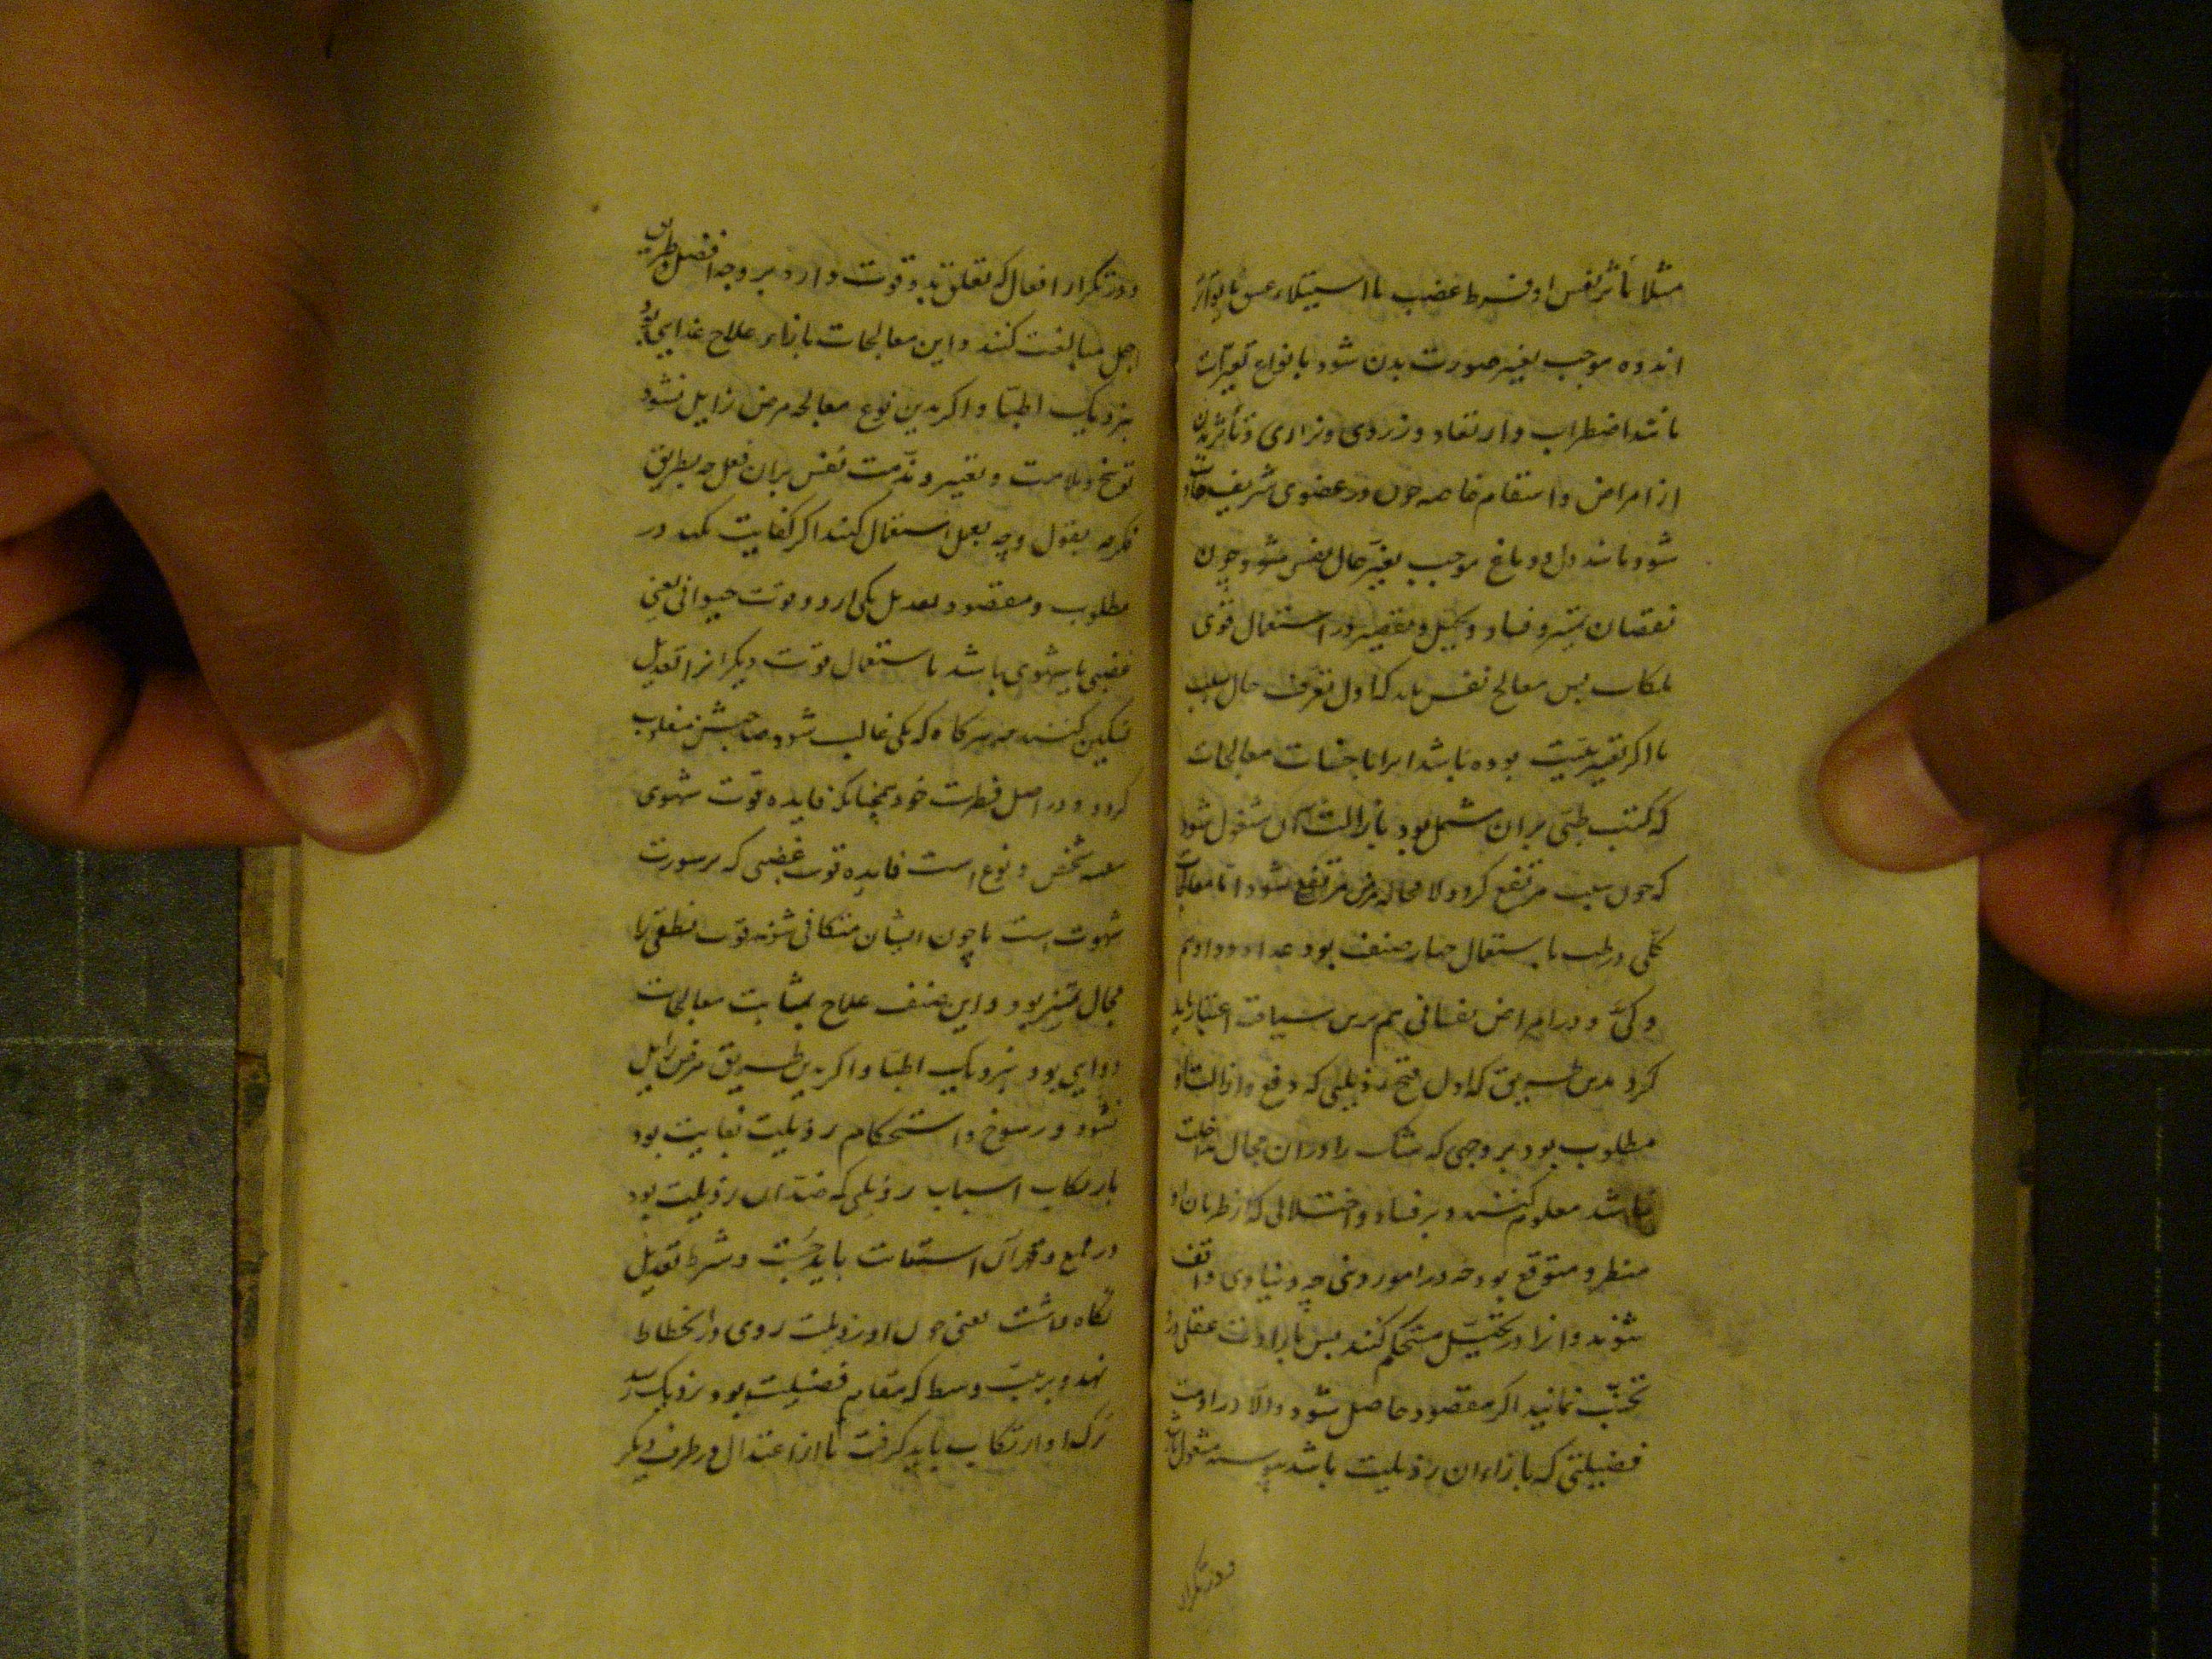 مثلا تأثر نفس او فرط غضب یا استیلاء عشق یا تواتر
اندوه موجب تغیر صورت بدن شود بانواع تغیرات
مانند اضطراب و ارتعاد و زردی و نزاری و تأثر بدن
از امراض و اسقام خاصه چون در عضوی شریف حادث
شود مانند دل و دماغ موجب تغیر حال نفس شود چون
نقصان تمییز و فساد و تخیل و تقصیر در استعمال قوی
ملکات پس معالج نفس باید که اول تعرف حال سبب
تا اگر تغیر بنیت بوده باشد انرا باصناف معالجات
که کتب طبی بران مشتمل بود بازالت آن مشغول شود
که چون سبب مرتفع کردد لا محاله مرض مرتفع شود اما معالجات
کلی در طب باستعمال چهار صنف بود غدا و دوا و سم
و کی و در امراض نفسانی هم برین سیاقت اعتبار باید
کرد بدین طریق که اول قبح رذیلتی که دفع و ازالت او
مطلوب بود بر وجهی که شک را دران مجال مداخلت
نباشد معلوم کنند و بر فساد و اختلالی که از طریان او
منتظر و متوقع بود چه در امور دینی چه دنیاوی واقف
شوند و انرا در تخیل مستحکم کنند پس بارادت عقلی از
تجنب نمایند اگر مقصود حاصل شود و الا در مداومت
فضیلتی که بازاء ان رذیلت باشد پیوسته مشغول باشند
و در تکرار
و در تکرار افعال که تعلق بدو قوت دارد بر وجه افضل و طریق
اجمل مبالغت کنند و این معالجات بازاء علاج غذایی بود
بنزدیک اطبا و اگر بدین نوع معالجه مرض زایل نشود
توبیخ و ملامت و تغییر و مذمت نفس بران فعل چه بطریق
فکر چه بقول و چه بعمل استعمال کنند اگر کفایت نکند در
مطلوب و مقصود تعدیل یکی از دو قوت حیوانی یعنی
غضبی یا شهوی باشد باستعمال قوت دیگر انرا تعدیل
تسکین کنند چه هر گاه که یکی غالب شود صاحبش مغلوب
گردد و در اصل فطرت خود همچنانکه فایده قوت شهوی
بقیه شخص و نوع است فایده قوت غضبی کسر سورت
شهوت است تا چون ایشان متکافی شوند قوت نطقی را
مجال تمییز بود و این صنف علاج بمثابت معالجات
دوایی بود بنزدیک اطبا و اگر بدین طریق مرض زایل
نشود و رسوخ و استحکام رذیلت بغایت بود
بارتکاب اسباب رذیلتی که ضد ان رذیلت بود
در قمع و قهر آن استعانت باید جست و شرط تعدیل
نگاه داشت یعنی چون ان رذیلت روی در انحطاط
نهد و برتبت وسط که مقام فضیلت بود نزدیک رسد
ترک او ارتکاب باید گرفت تا از اعتدال در طرف دیگر